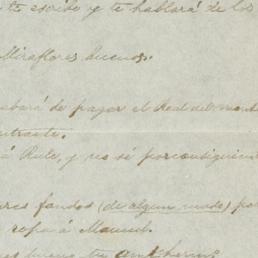 te escribe y te hablará de los
Miraflores buenos.
acabará de pagar el Real del monte
entrante.
á Rule, y no sé por consiguiente
fondos (de algun modo) pa
ropa á Manuel.